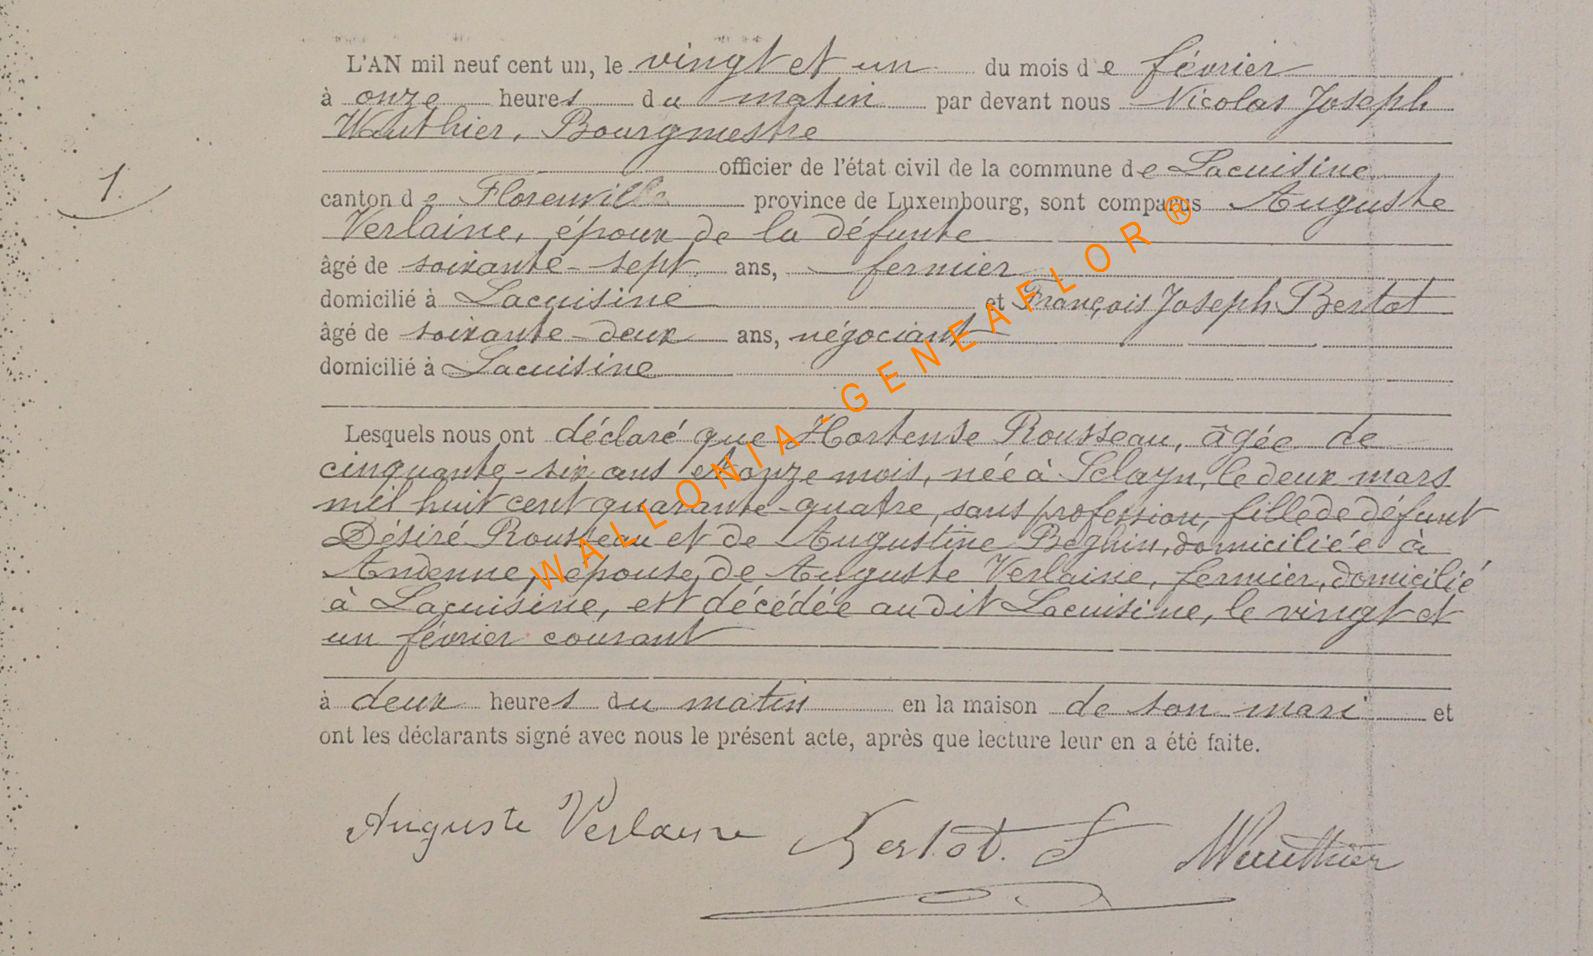 L'AN mil neuf cent un, le vingt et un du mois de février
à onze heures du matin par devant nous Nicolas Joseph
Wauthier, Bourgmestre
officier de l'état civil de la commune de Lacuisine
canton de Florenville province de Luxembourg, sont comparus Auguste
Verlaine, époux de la défunte
1.
âgé de soixante-sept ans, fermier
domicilié à Lacuisine et François Joseph Bertot
âgé de soixante-deux ans, négociant
domicilié à Lacuisine
Lesquels nous ont déclaré que Hortense Rousseau, âgée de
cinquante-six ans et onze mois, née à Sclayn, le deux mars
mil huit cent quarante-quatre, sans profession, fille de défunt
Désiré Rousseau et de Augustine Beguin, domiciliée à
Andenne, épouse de Auguste Verlaine, fermier, domicilié
à Lacuisine, est décédée audit Lacuisine, le vingt et
un février courant
à deux heures du matin en la maison de son mari et
ont les déclarants signé avec nous le présent acte, après que lecture leur en a été faite.
Auguste Verlaine Bertot. F NWauthier
WALLONIA-GENEAFLOR ®